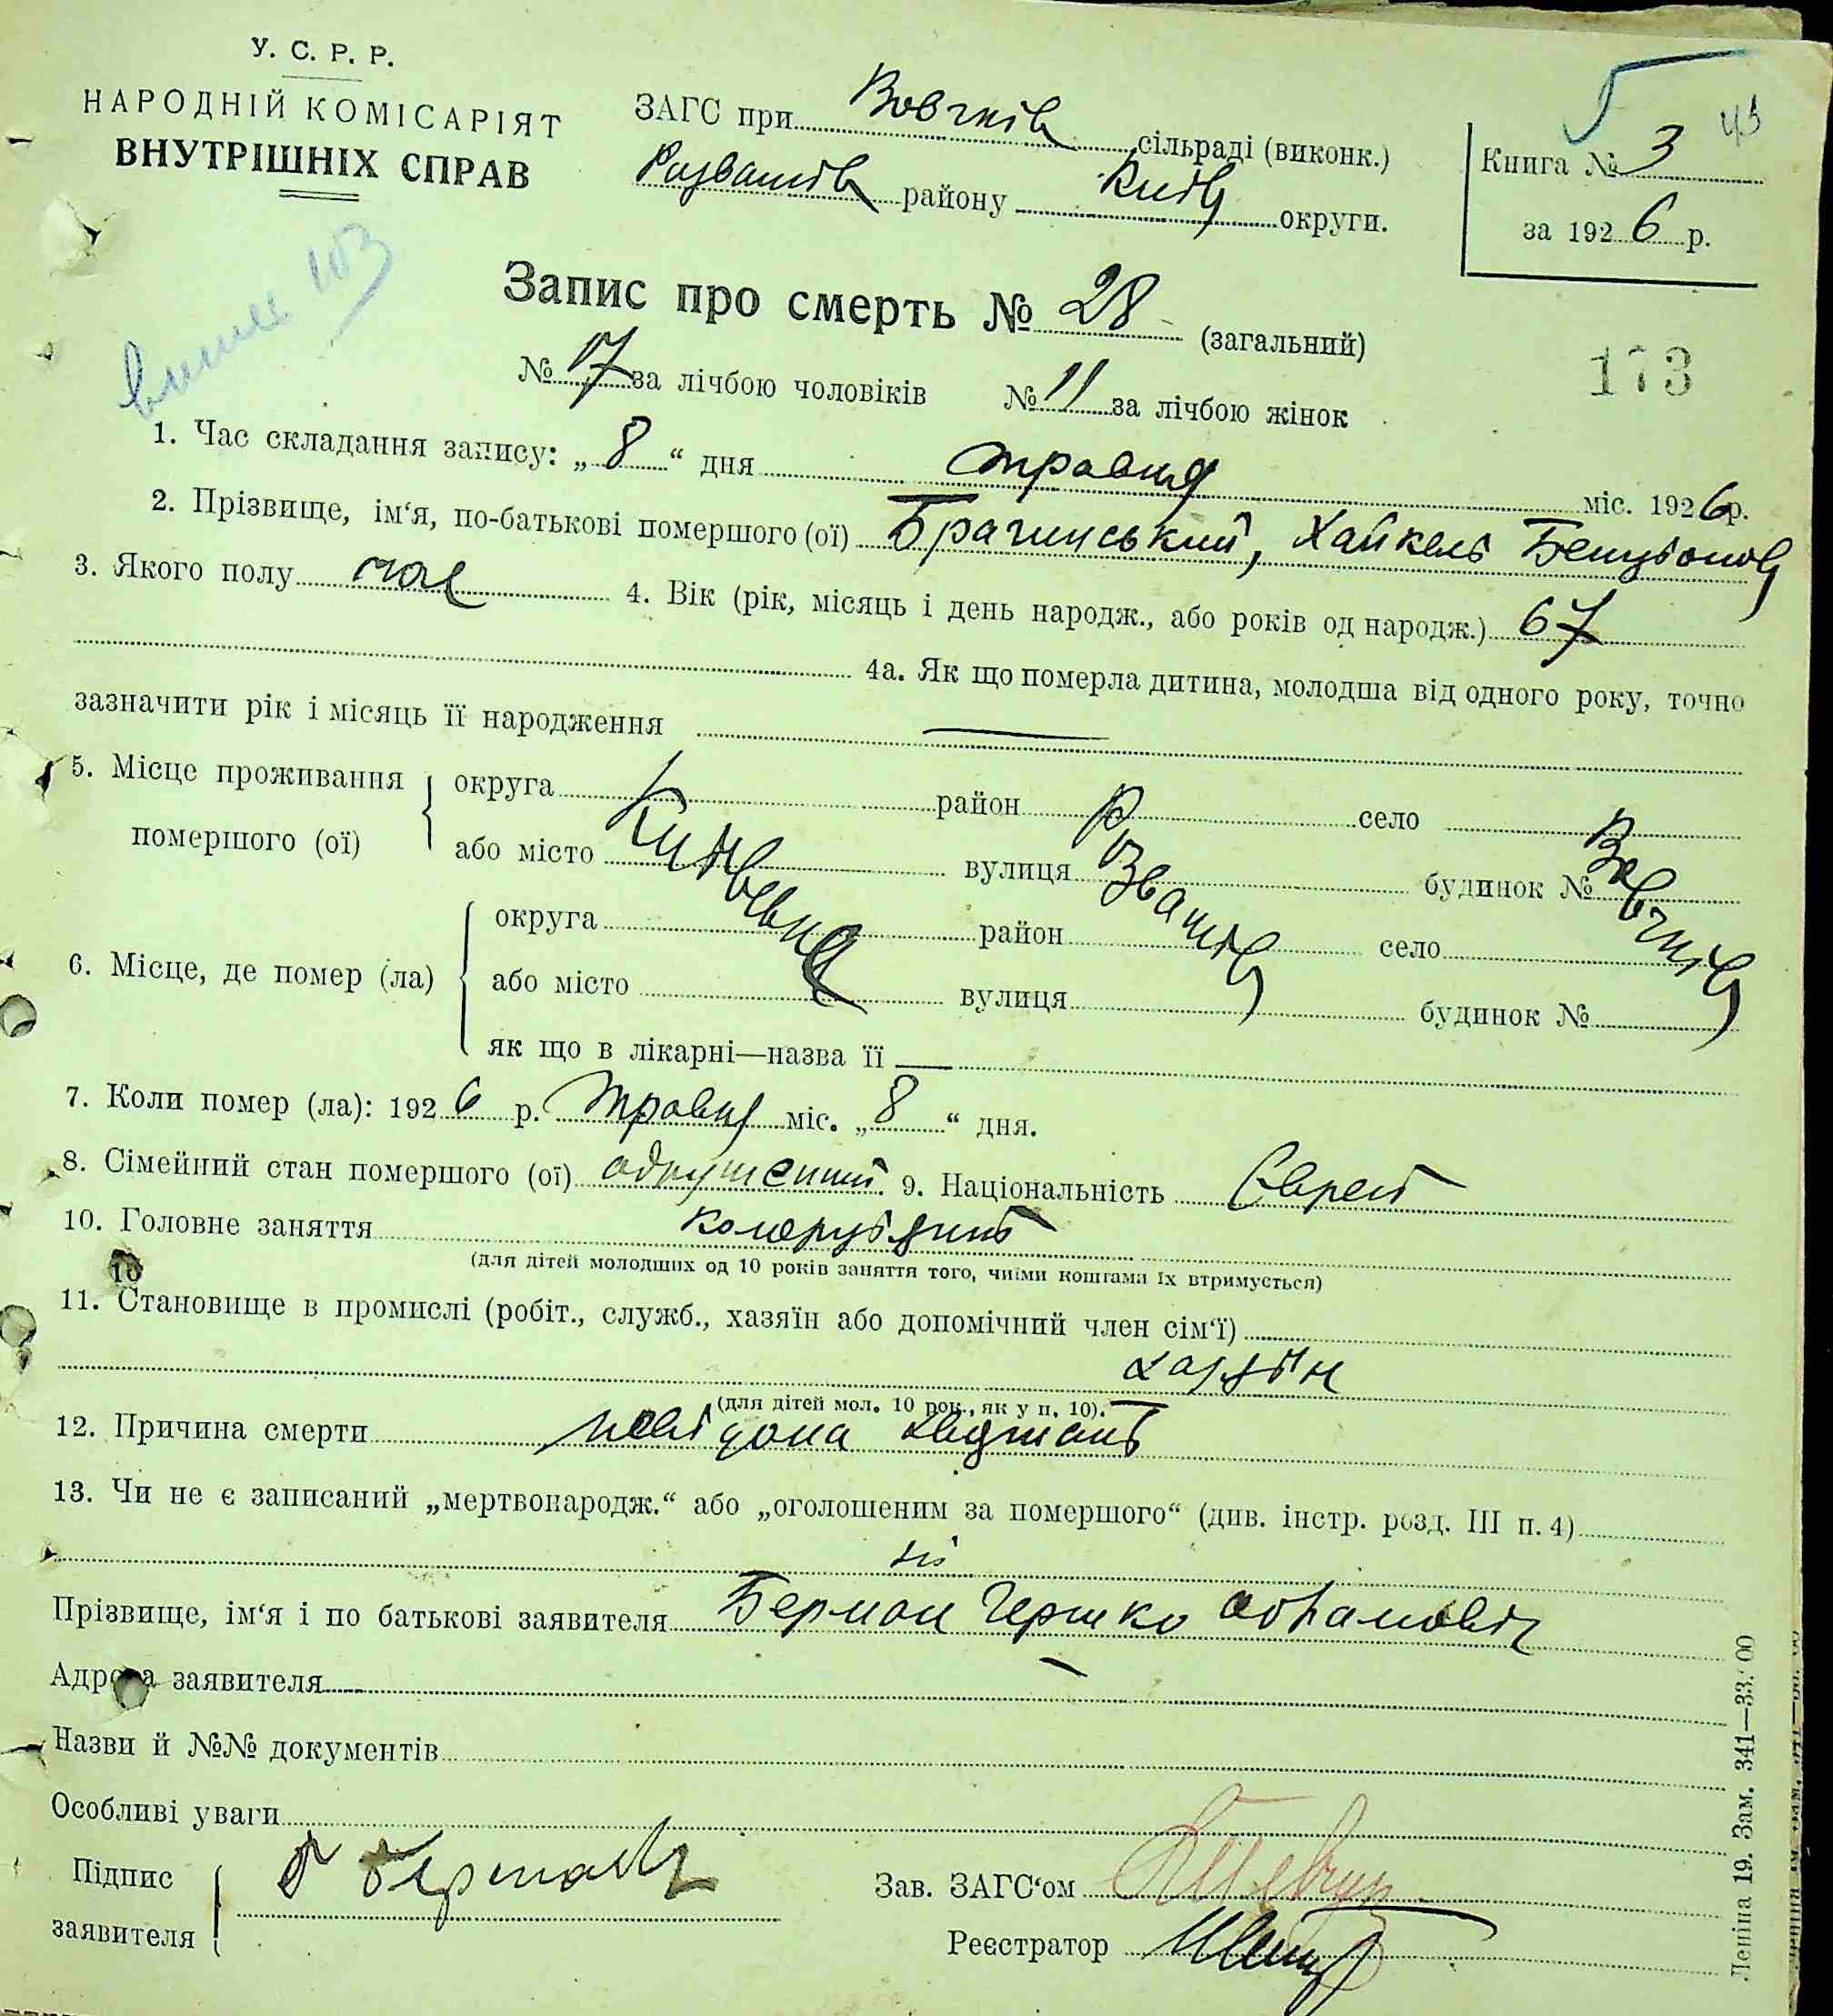 У. С. Р. Р.
НАРОДНІЙ КОМІСАРІЯТ
ВНУТРІШНІХ СПРАВ
ЗАГС при Вовчків сільраді (виконк.)
Розважів району Київ округи.
Книга № 3
за 1926 р.
43
Запис про смерть № 28 (загальний)
173
№ 17 за лічбою чоловіків № 11 за лічбою жінок
1. Час складання запису: „8“ дня травня міс. 1926 р.
2. Прізвище, ім‘я, по-батькові помершого (ої) Брагинський, Хайкель Бенціонов
3. Якого полу чол 4. Вік (рік, місяць і день народж., або років од народж.) 67
4а. Як що померла дитина, молодша від одного року, точно
зазначити рік і місяць її народження —
5. Місце проживання помершого (ої) округа район село
або місто вулиця будинок №
Київська Розважів Вовчків
6. Місце, де помер (ла) округа район село
або місто вулиця будинок №
як що в лікарні—назва її —
7. Коли помер (ла): 1926 р. травня міс. „8“ дня.
8. Сімейний стан помершого (ої) одружений. 9. Національність Єврей
10. Головне заняття
(для дітей молодших од 10 років заняття того, чиїми коштами їх втримується)
11. Становище в промислі (робіт., служб., хазяїн або допомічний член сім‘ї)
хазяїн
(для дітей мол. 10 рок., як у п. 10).
12. Причина смерти невідома
13. Чи не є записаний „мертвонародж.“ або „оголошеним за помершого“ (див. інстр. розд. III п. 4)
ні
Прізвище, ім‘я і по батькові заявителя Берман Гершко Абрамович
Адреса заявителя —
Назви й №№ документів
Особливі уваги
Підпис заявителя
Зав. ЗАГС‘ом
Реєстратор
Леніна 19. Зам. 341—33.000